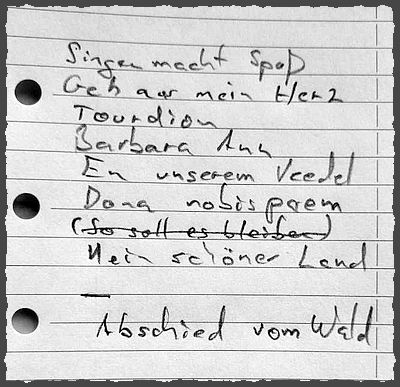 Singen macht Spaß
Geh aus mein Herz
Tourdion
Barbara Ann
En unserem Veedel
Dona nobis pacem
(So soll es bleiben)
Kein schöner Land
Abschied vom Wald